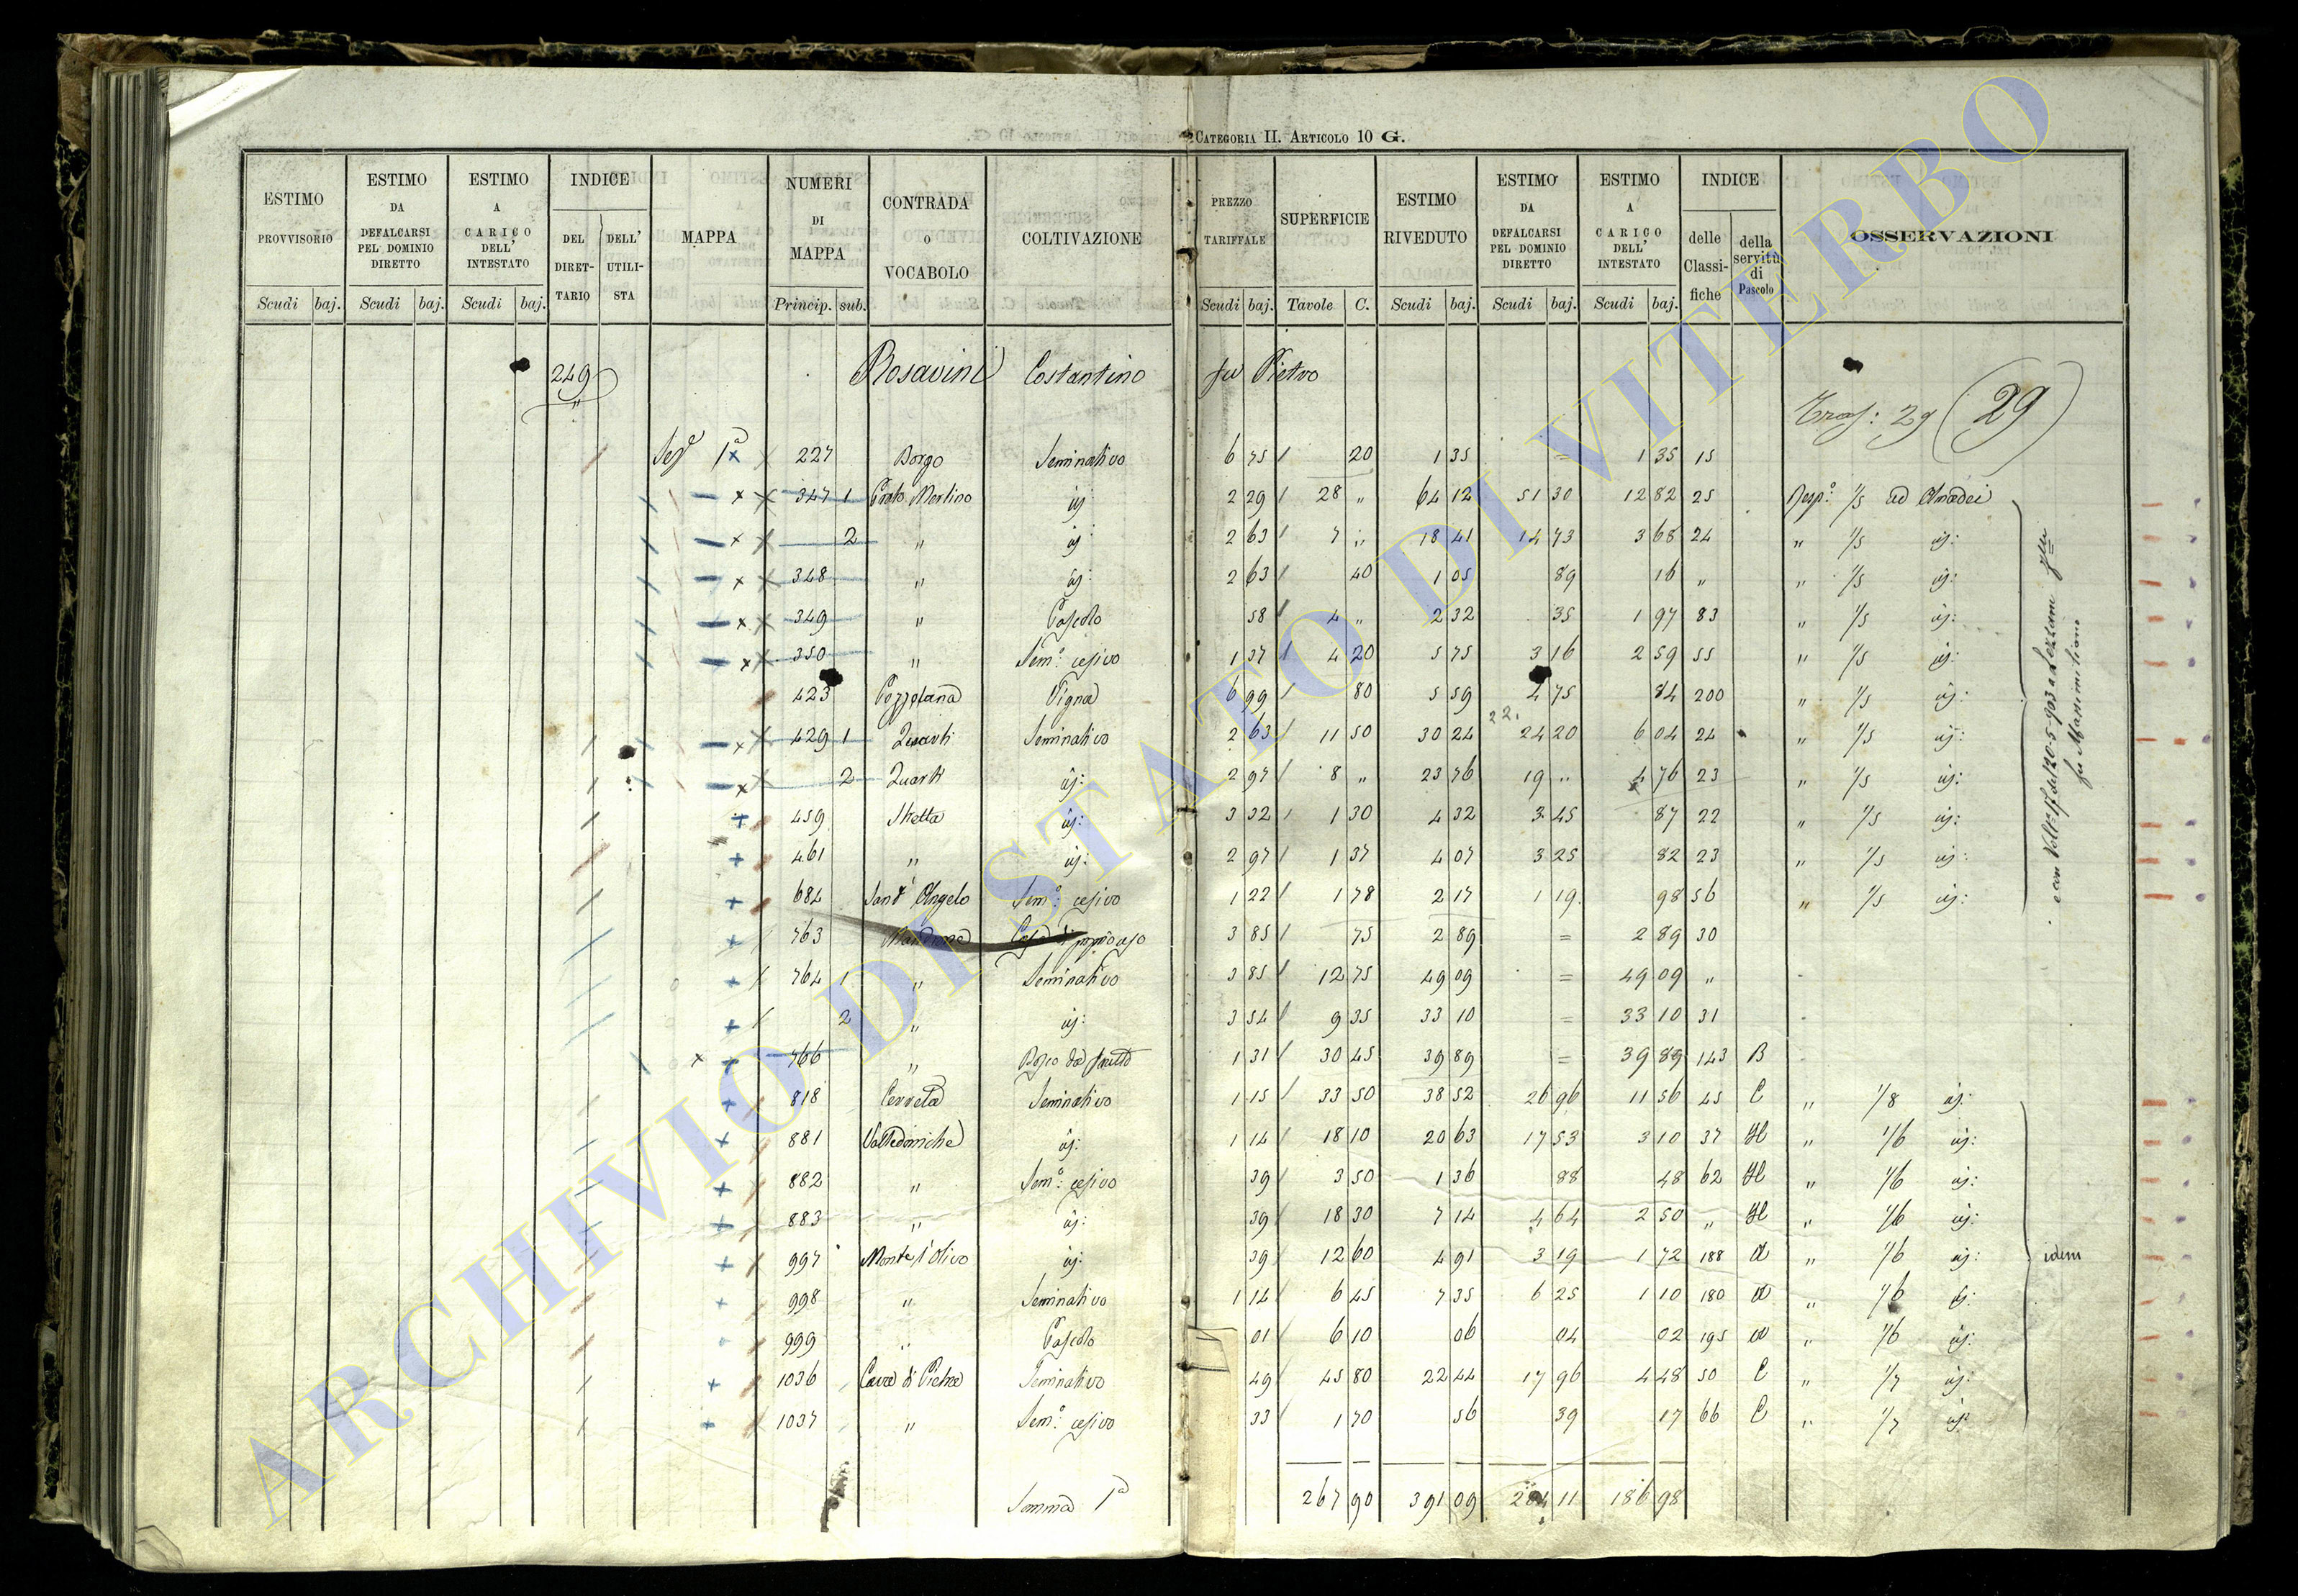 CATEGORIA II. ARTICOLO 10 G.
ESTIMO PROVVISORIO Scudi baj.
ESTIMO DA DEFALCARSI PEL DOMINIO DIRETTO Scudi baj.
ESTIMO A CARICO DELL' INTESTATO Scudi baj.
INDICE DEL DIRET- TARIO DELL' UTILI- STA
MAPPA
NUMERI DI MAPPA Princip. sub.
CONTRADA O VOCABOLO
COLTIVAZIONE
PREZZO TARIFFALE Scudi baj.
SUPERFICIE Tavole C.
ESTIMO RIVEDUTO Scudi baj.
ESTIMO DA DEFALCARSI PEL DOMINIO DIRETTO Scudi baj.
ESTIMO A CARICO DELL' INTESTATO Scudi baj.
INDICE delle Classi- fiche della servitù di Pascolo
OSSERVAZIONI
249 Rosavini Costantino fu Pietro
"
Tras: 29 (29)
Sez.e 1a 227 Borgo Seminativo 6 75 20 1 35 = 1 35 15
347 1 Prato Merlino id: 2 29 28 " 64 12 51 30 12 82 25 Resp.e 1/5 ad Amadei
2 " id: 2 63 7 " 18 41 14 73 3 68 24 " 1/5 id:
348 " id: 2 63 40 1 05 89 16 " " 1/5 id:
349 " Pascolo 58 4 " 2 32 35 1 97 83 " 1/5 id:
350 " Sem.o cesivo 1 37 4 20 5 75 3 16 2 59 55 " 1/5 id:
423 Pozzolana Vigna 6 99 80 5 59 4 75 84 200 " 1/5 id:
22.
429 1 Quarti Seminativo 2 63 11 50 30 24 24 20 6 04 24 " 1/5 id:
2 Quarti id: 2 97 8 " 23 76 19 " 4 76 23 " 1/5 id:
459 id: 3 32 1 30 4 32 3 45 87 22 " 1/5 id:
461 " id: 2 97 1 37 4 07 3 25 82 23 " 1/5 id:
684 Sant' Angelo Sem.o cesivo 1 22 1 78 2 17 1 19 98 56 " 1/5 id:
763 Casa di proprio uso 3 85 75 2 89 = 2 89 30
764 1 " Seminativo 3 85 12 75 49 09 = 49 09 "
2 " id: 3 54 9 35 33 10 = 33 10 31
766 " Bosco da frutto 1 31 30 45 39 89 = 39 89 143 B
818 Cerreta Seminativo 1 15 33 50 38 52 26 96 11 56 45 C " 1/8 id:
881 Valledoniche id: 1 14 18 10 20 63 17 53 3 10 37 H " 1/6 id:
882 " Sem.o cesivo 39 3 50 1 36 88 48 62 H " 1/6 id:
883 " id: 39 18 30 7 14 4 64 2 50 " H " 1/6 id:
997 Monte l'Olivo id: 39 12 60 4 91 3 19 1 72 188 A " 1/6 id:
998 " Seminativo 1 14 6 45 7 35 6 25 1 10 180 A " 1/6 id:
999 " Pascolo 01 6 10 06 04 02 195 A " 1/6 id:
1036 Cava di Pietra Seminativo 49 45 80 22 44 17 96 4 48 50 C " 1/7 id:
1037 " Sem.o cesivo 33 1 70 56 39 17 66 C " 1/7 id:
Somma 1a 267 90 391 09 204 11 186 98
fu Massimiliano
idem
ARCHIVIO DI STATO DI VITERBO